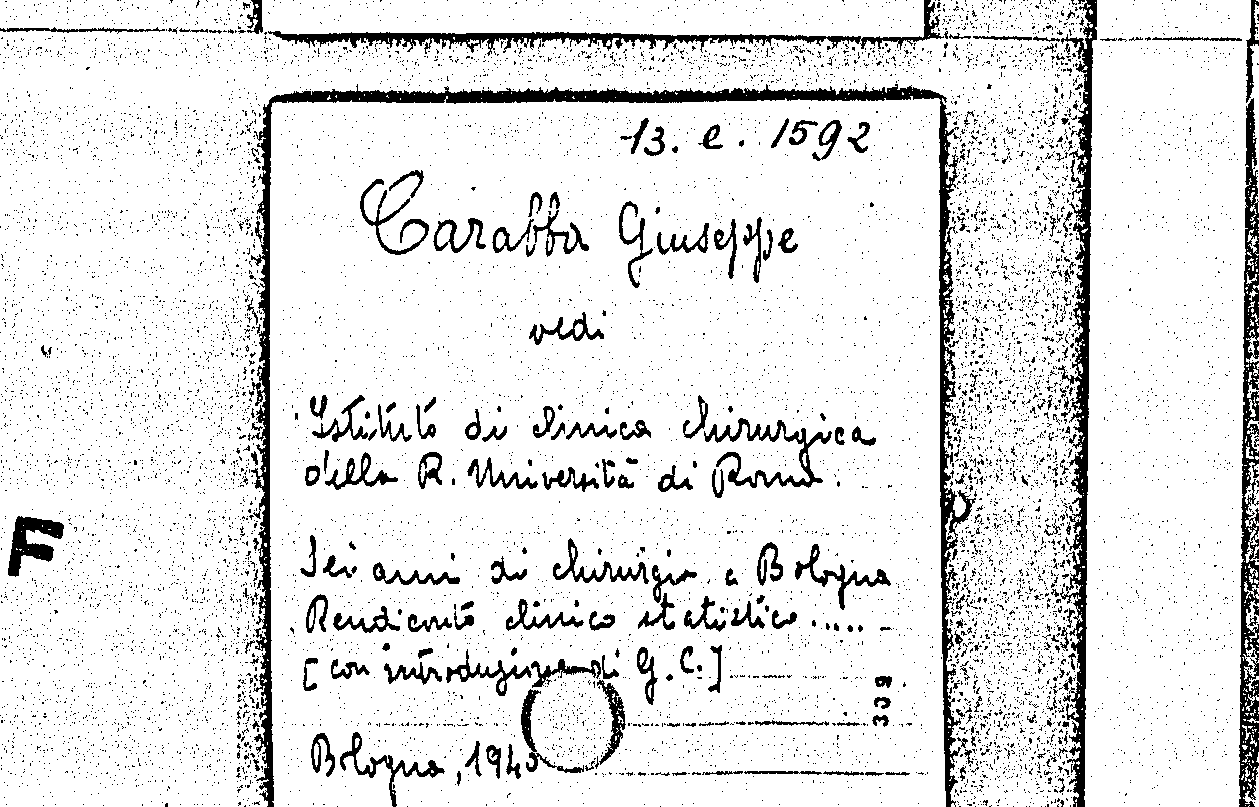 13. e. 1592
Carabba Giuseppe
vedi
Istituto di clinica chirurgica
della R. Università di Roma.
Sei anni di chirurgia a Bologna
Rendiconto clinico statistico .....
[con introduzione di G. C.]
309
Bologna,
F